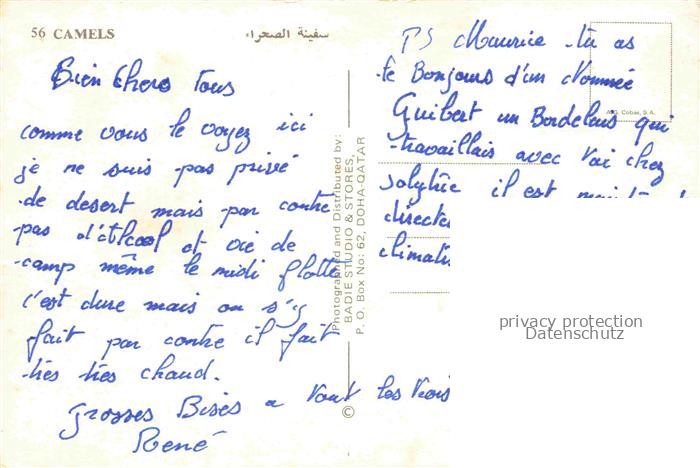 56 CAMELS
سفينة الصحراء
Bien chers tous
comme vous le voyez ici
je ne suis pas privé
de desert mais par contre
pas d'Alcool et vie de
camp même le midi flotte
c'est dure mais on s'y
fait par contre il fait
tres tres chaud.
Grosses Bises a Vous les Trois
René
Photographed and Distributed by:
BADIE STUDIO & STORES,
P. O. Box No: 62, DOHA-QATAR
©
PS Maurice tu as
le Bonjours d'un Nommée
Guibert un Bordelais qui
travaillais avec toi chez
il est
A.G. Cobas, S.A.
privacy protection
Datenschutz